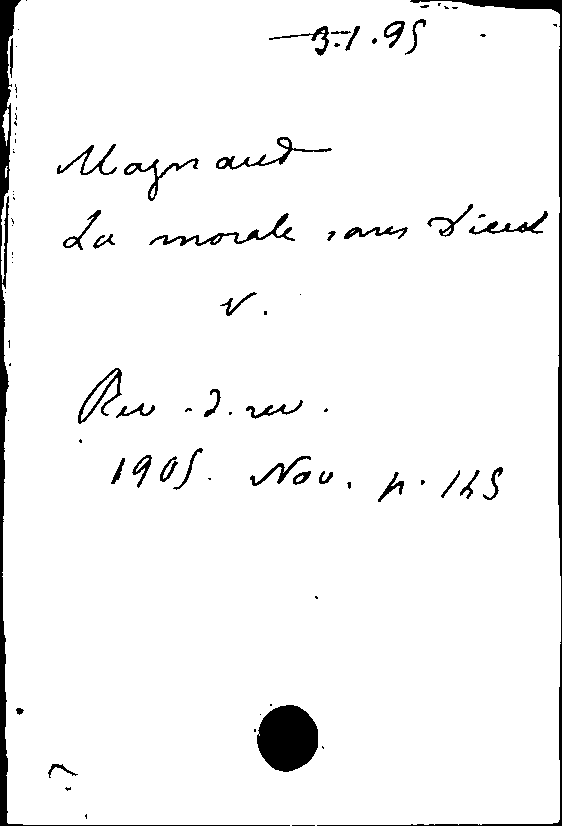 3.1.95
Magnaud
La morale sans Dieu
v.
Rev. d. rev.
1905. Nov. p. 145